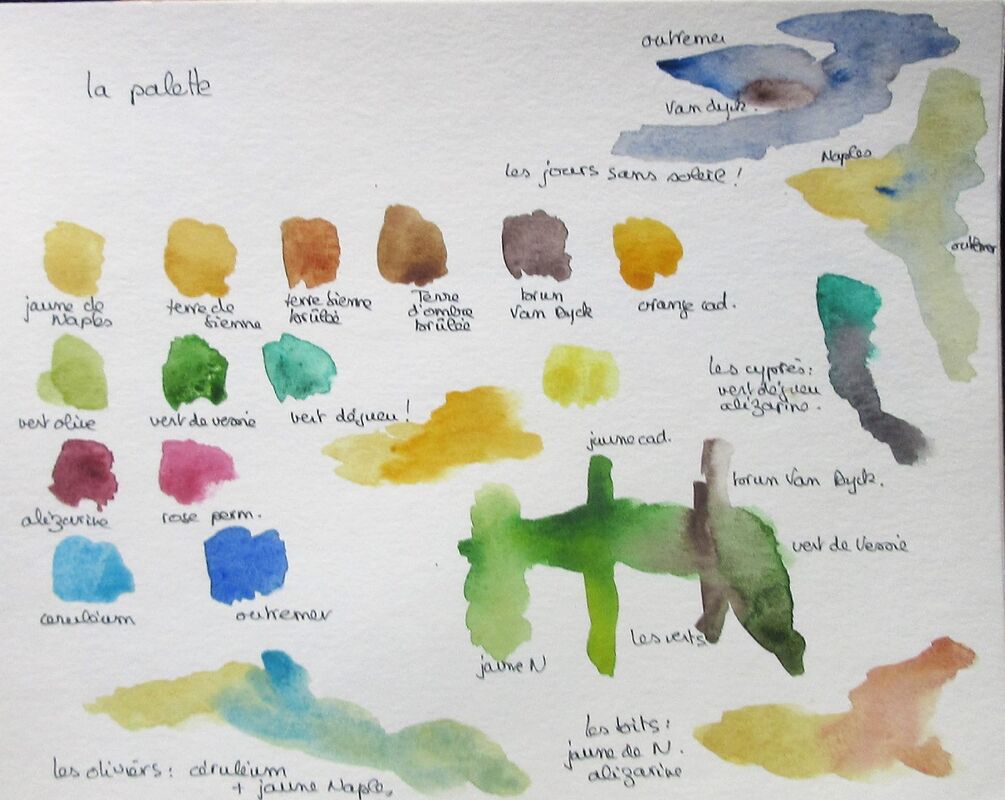 la palette
outremer
Van dyck.
les jours sans soleil !
Naples
outremer
jaune de
Naples
terre de
Sienne
terre Sienne
brûlée
Terre
d'ombre
brûlée
brun
Van Dyck
orange cad.
vert olive
vert de vessie
vert dégueu !
jaune cad.
les cyprès :
vert dégueu
alizarine.
alizarine
rose perm.
brun Van Dyck.
vert de Vessie
céruléum
outremer
les verts
jaune N
les oliviers : céruléum
+ jaune Naples
les toits :
jaune de N.
alizarine